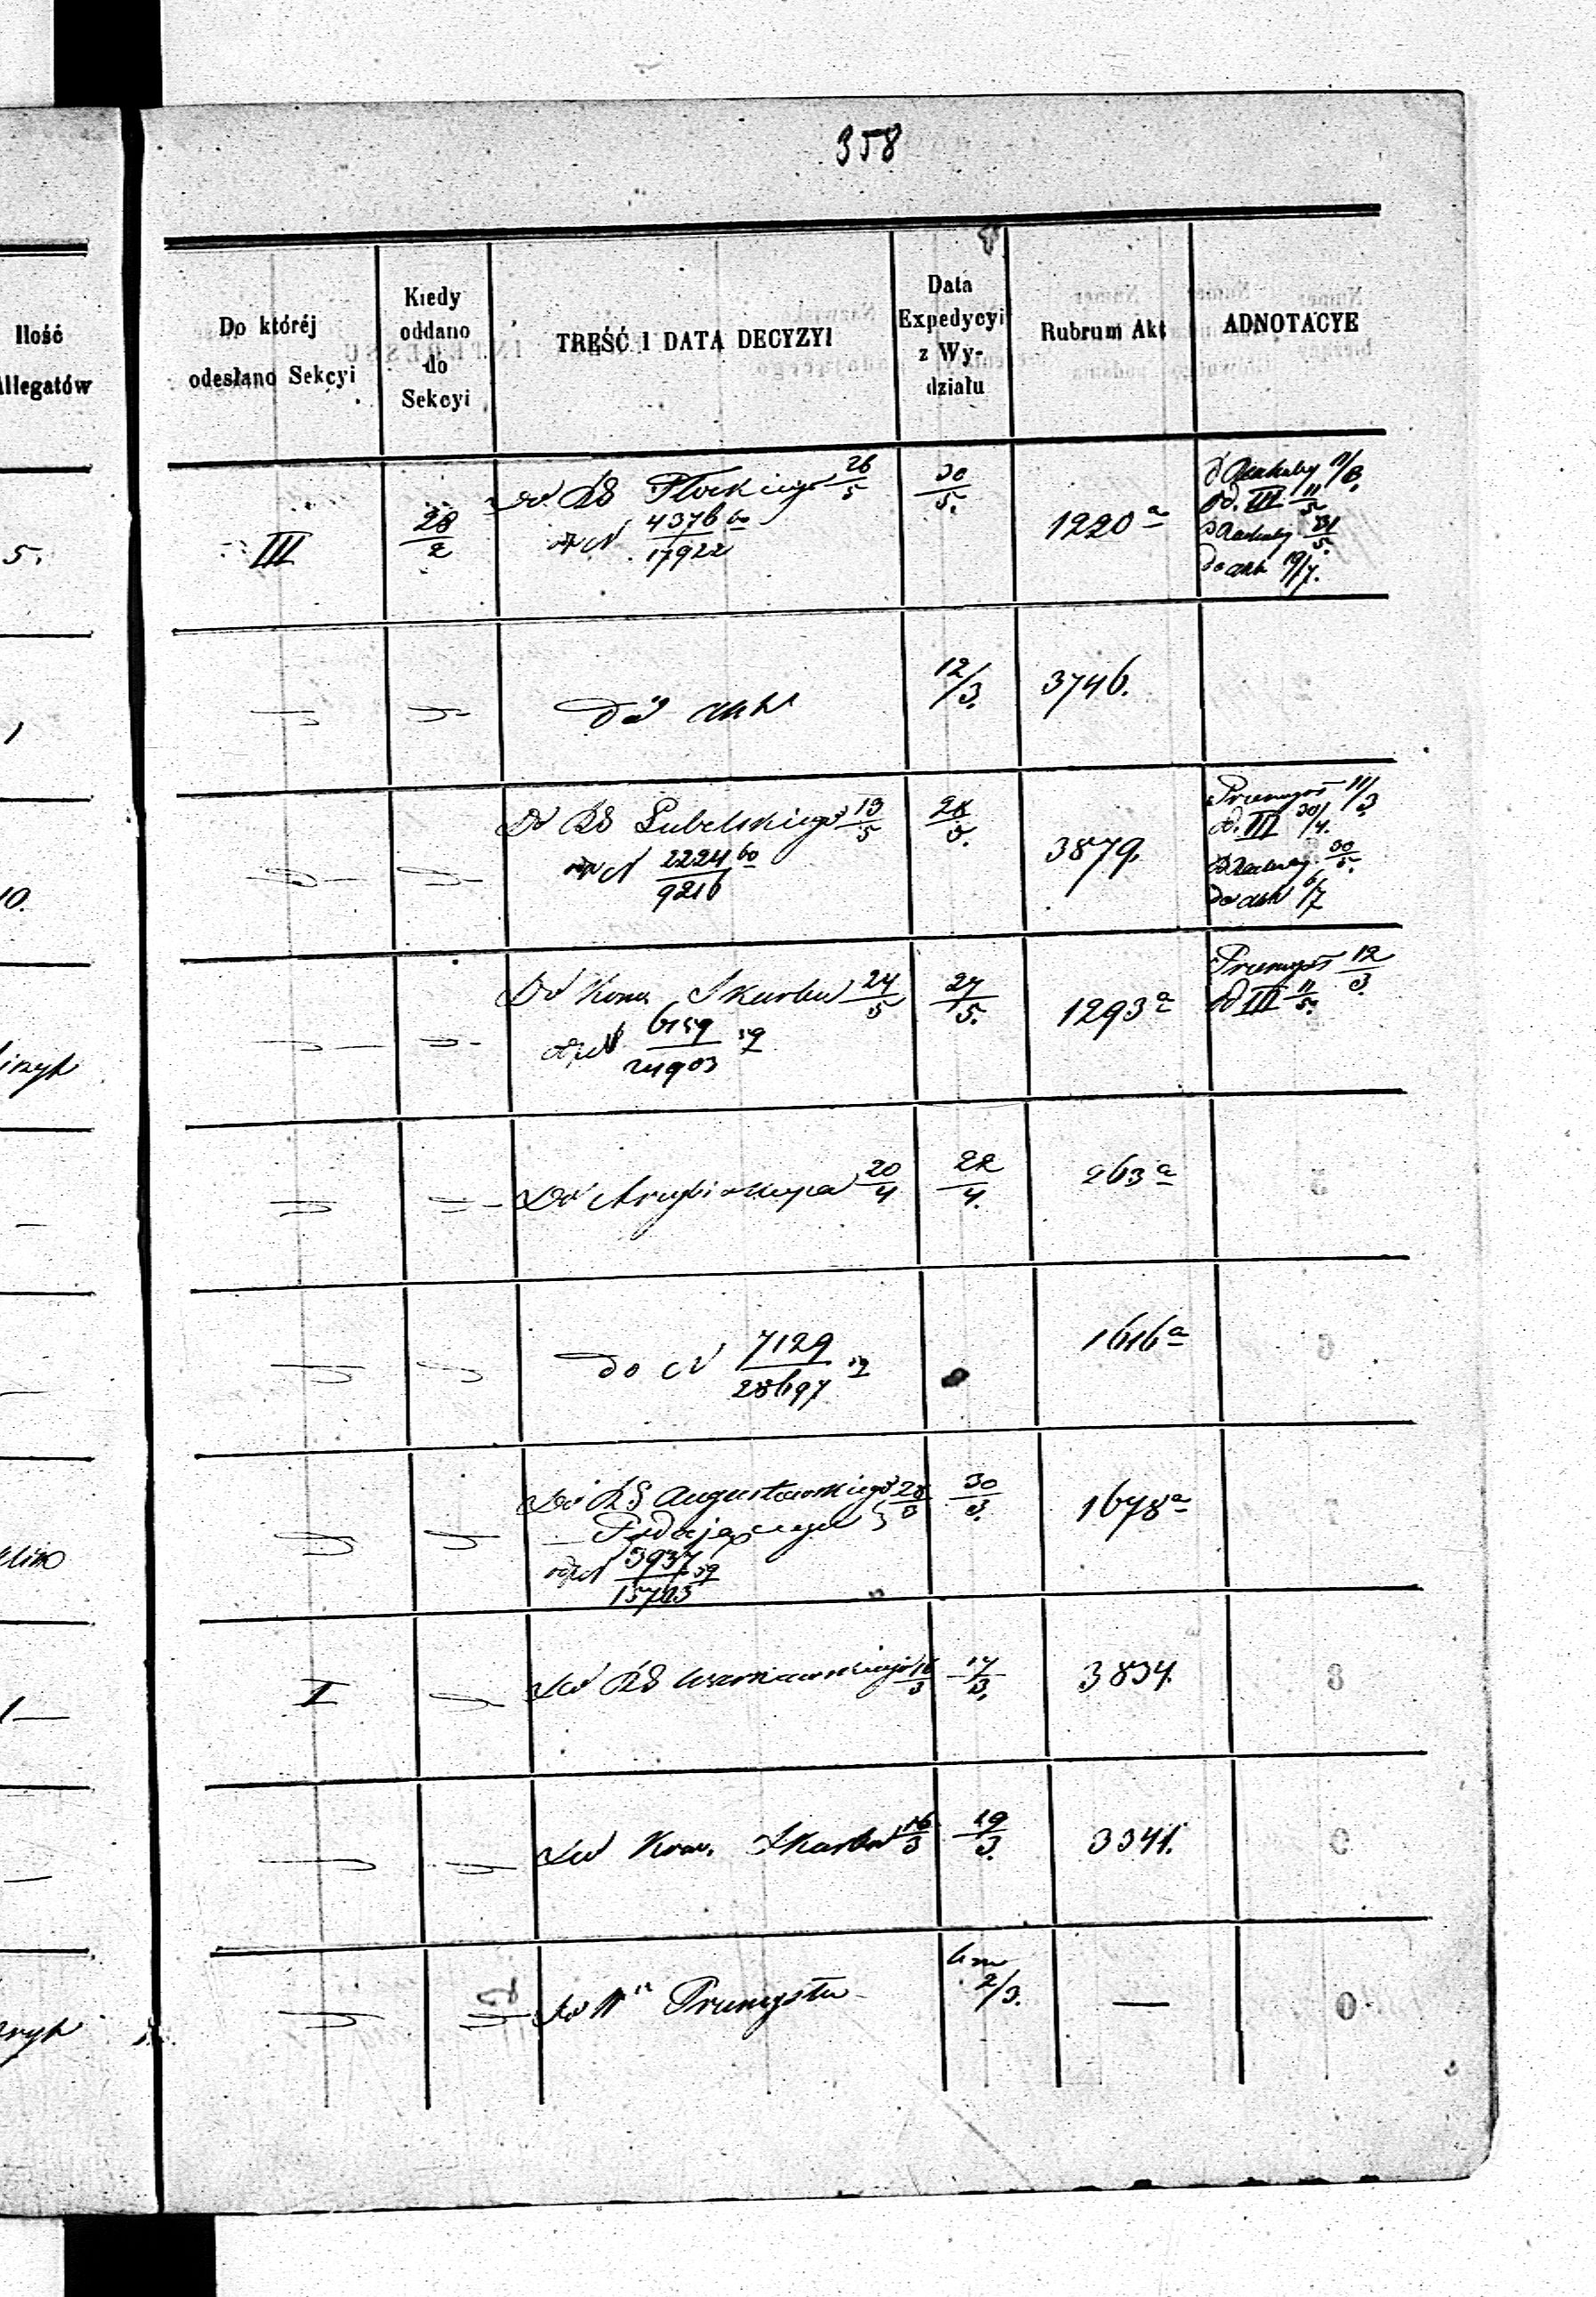 358
Ilość
Allegatów
Do któréj
odesłano Sekcyi
Kiedy
oddano
do
Sekcyi
TREŚĆ I DATA DECYZYI
Data
Expedycyi
z Wy-
działu
Rubrum Akt
ADNOTACYE
5.
III
28/2
Do RG Płockiego 26/5
N 4376/17922 60
30/5.
1220 a
od. III 11/5
31/5.
do akt 19/7.
1
do akt
12/3.
3746.
10.
Do RG Lubelskiego 13/5
N 2224/9216 60
28/5.
3879.
Przemysł 11/3
od. III 30/4.
30/5.
do akt 6/7
Do Kom. Skarbu 24/5
N 6159/24903 59
27/5.
1293 a
Przemysł 12/3.
od III 11/5.
Do Arcybiskupa 20/4
22/4.
263 a
do N 7129/28697 59
1616 a
Do RG Augustowskiego 28/3
Podającego
N 3937/15763 59
30/3.
1678 a
1
I
Do RG Warszawskiego 16/3
17/3.
3834.
Do Kom. Skarbu 16/3
19/3.
3341.
Do Wu Przemysłu
2/3.
—